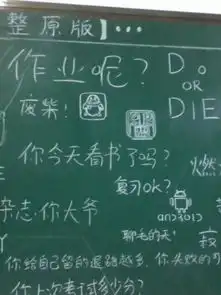 整原版】···
作业呢？
Do
OR
DIE
废柴！
你今天看书了吗？
燃
复习OK？
android
杂志·你大爷
聊毛的天！
寂
你给自己留的退路越多，你失败的可
你上次考试多少分？